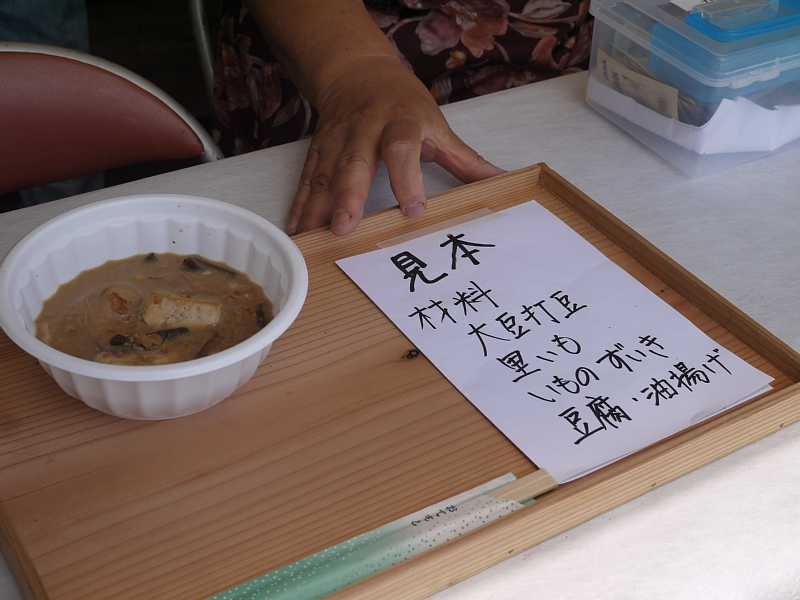 見本
材料
大豆打豆
里いも
いものずいき
豆腐・油揚げ
おてもと